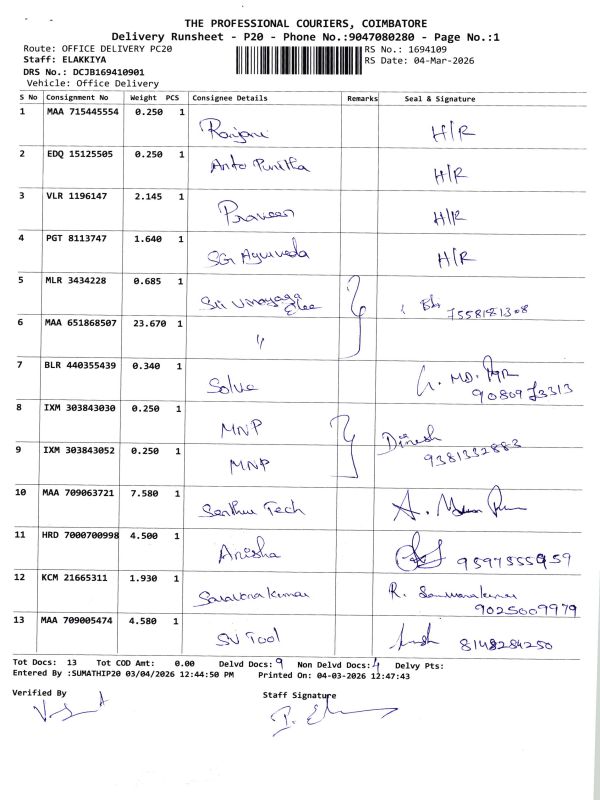 THE PROFESSIONAL COURIERS, COIMBATORE
Delivery Runsheet - P20 - Phone No.:9047080280 - Page No.:1
Route: OFFICE DELIVERY PC20 RS No.: 1694109
Staff: ELAKKIYA RS Date: 04-Mar-2026
DRS No.: DCJB169410901
Vehicle: Office Delivery
S No Consignment No Weight PCS Consignee Details Remarks Seal & Signature
1 MAA 715445554 0.250 1 Ranjani H/R
2 EDQ 15125505 0.250 1 Anto Punitha H/R
3 VLR 1196147 2.145 1 Praveen H/R
4 PGT 8113747 1.640 1 SGR Ayurveda H/R
5 MLR 3434228 0.685 1 Sri Vinayaga Elec 7558181308
6 MAA 651868507 23.670 1 "
7 BLR 440355439 0.340 1 Solve MD.
9080973313
8 IXM 303843030 0.250 1 MNP Dinesh
9381332883
9 IXM 303843052 0.250 1 MNP
10 MAA 709063721 7.580 1 Senthur Tech
11 HRD 7000700998 4.500 1 Anisha 9597555959
12 KCM 21665311 1.930 1 Saravanakumar R. Saravanakumar
9025009979
13 MAA 709005474 4.580 1 SV Tool 8148284250
Tot Docs: 13 Tot COD Amt: 0.00 Delvd Docs: 9 Non Delvd Docs: 4 Delvy Pts:
Entered By :SUMATHIP20 03/04/2026 12:44:50 PM Printed On: 04-03-2026 12:47:43
Verified By Staff Signature